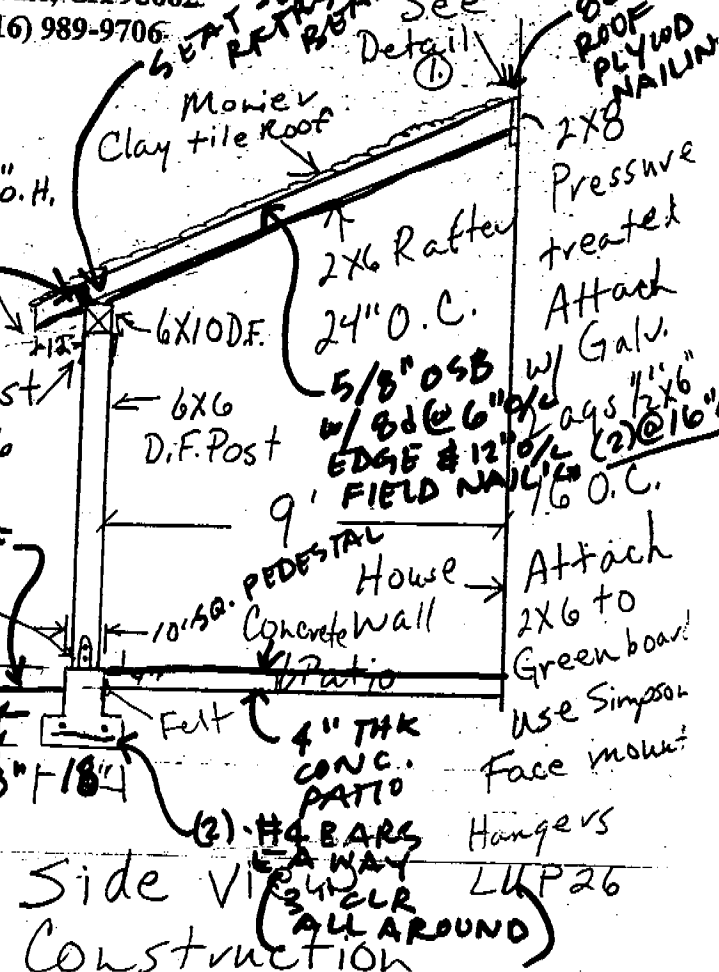 16) 989-9706
See
Detail
1.
ROOF
PLYWD
NAILIN
Monier
Clay tile Roof
O.H.
2X8
Pressure
treated
Attach
w/ Galv.
Lags 1/2"x6"
(2)@16"
16 O.C.
2X6 Rafter
24" O.C.
6X10 D.F.
12"
5/8" OSB
w/ 8d @ 6" O/C
EDGE & 12" O/C
FIELD NAIL'G
6X6
D.F. Post
9'
10" SQ. PEDESTAL
House
Wall
Concrete
Patio
Attach
2X6 to
Green board
use Simpson
Face mount
Hangers
LUP26
Felt
4" THK
CONC.
PATIO
18"
(2)-#4 BARS
EA WAY
3" CLR
ALL AROUND)
Side Vi
Construction